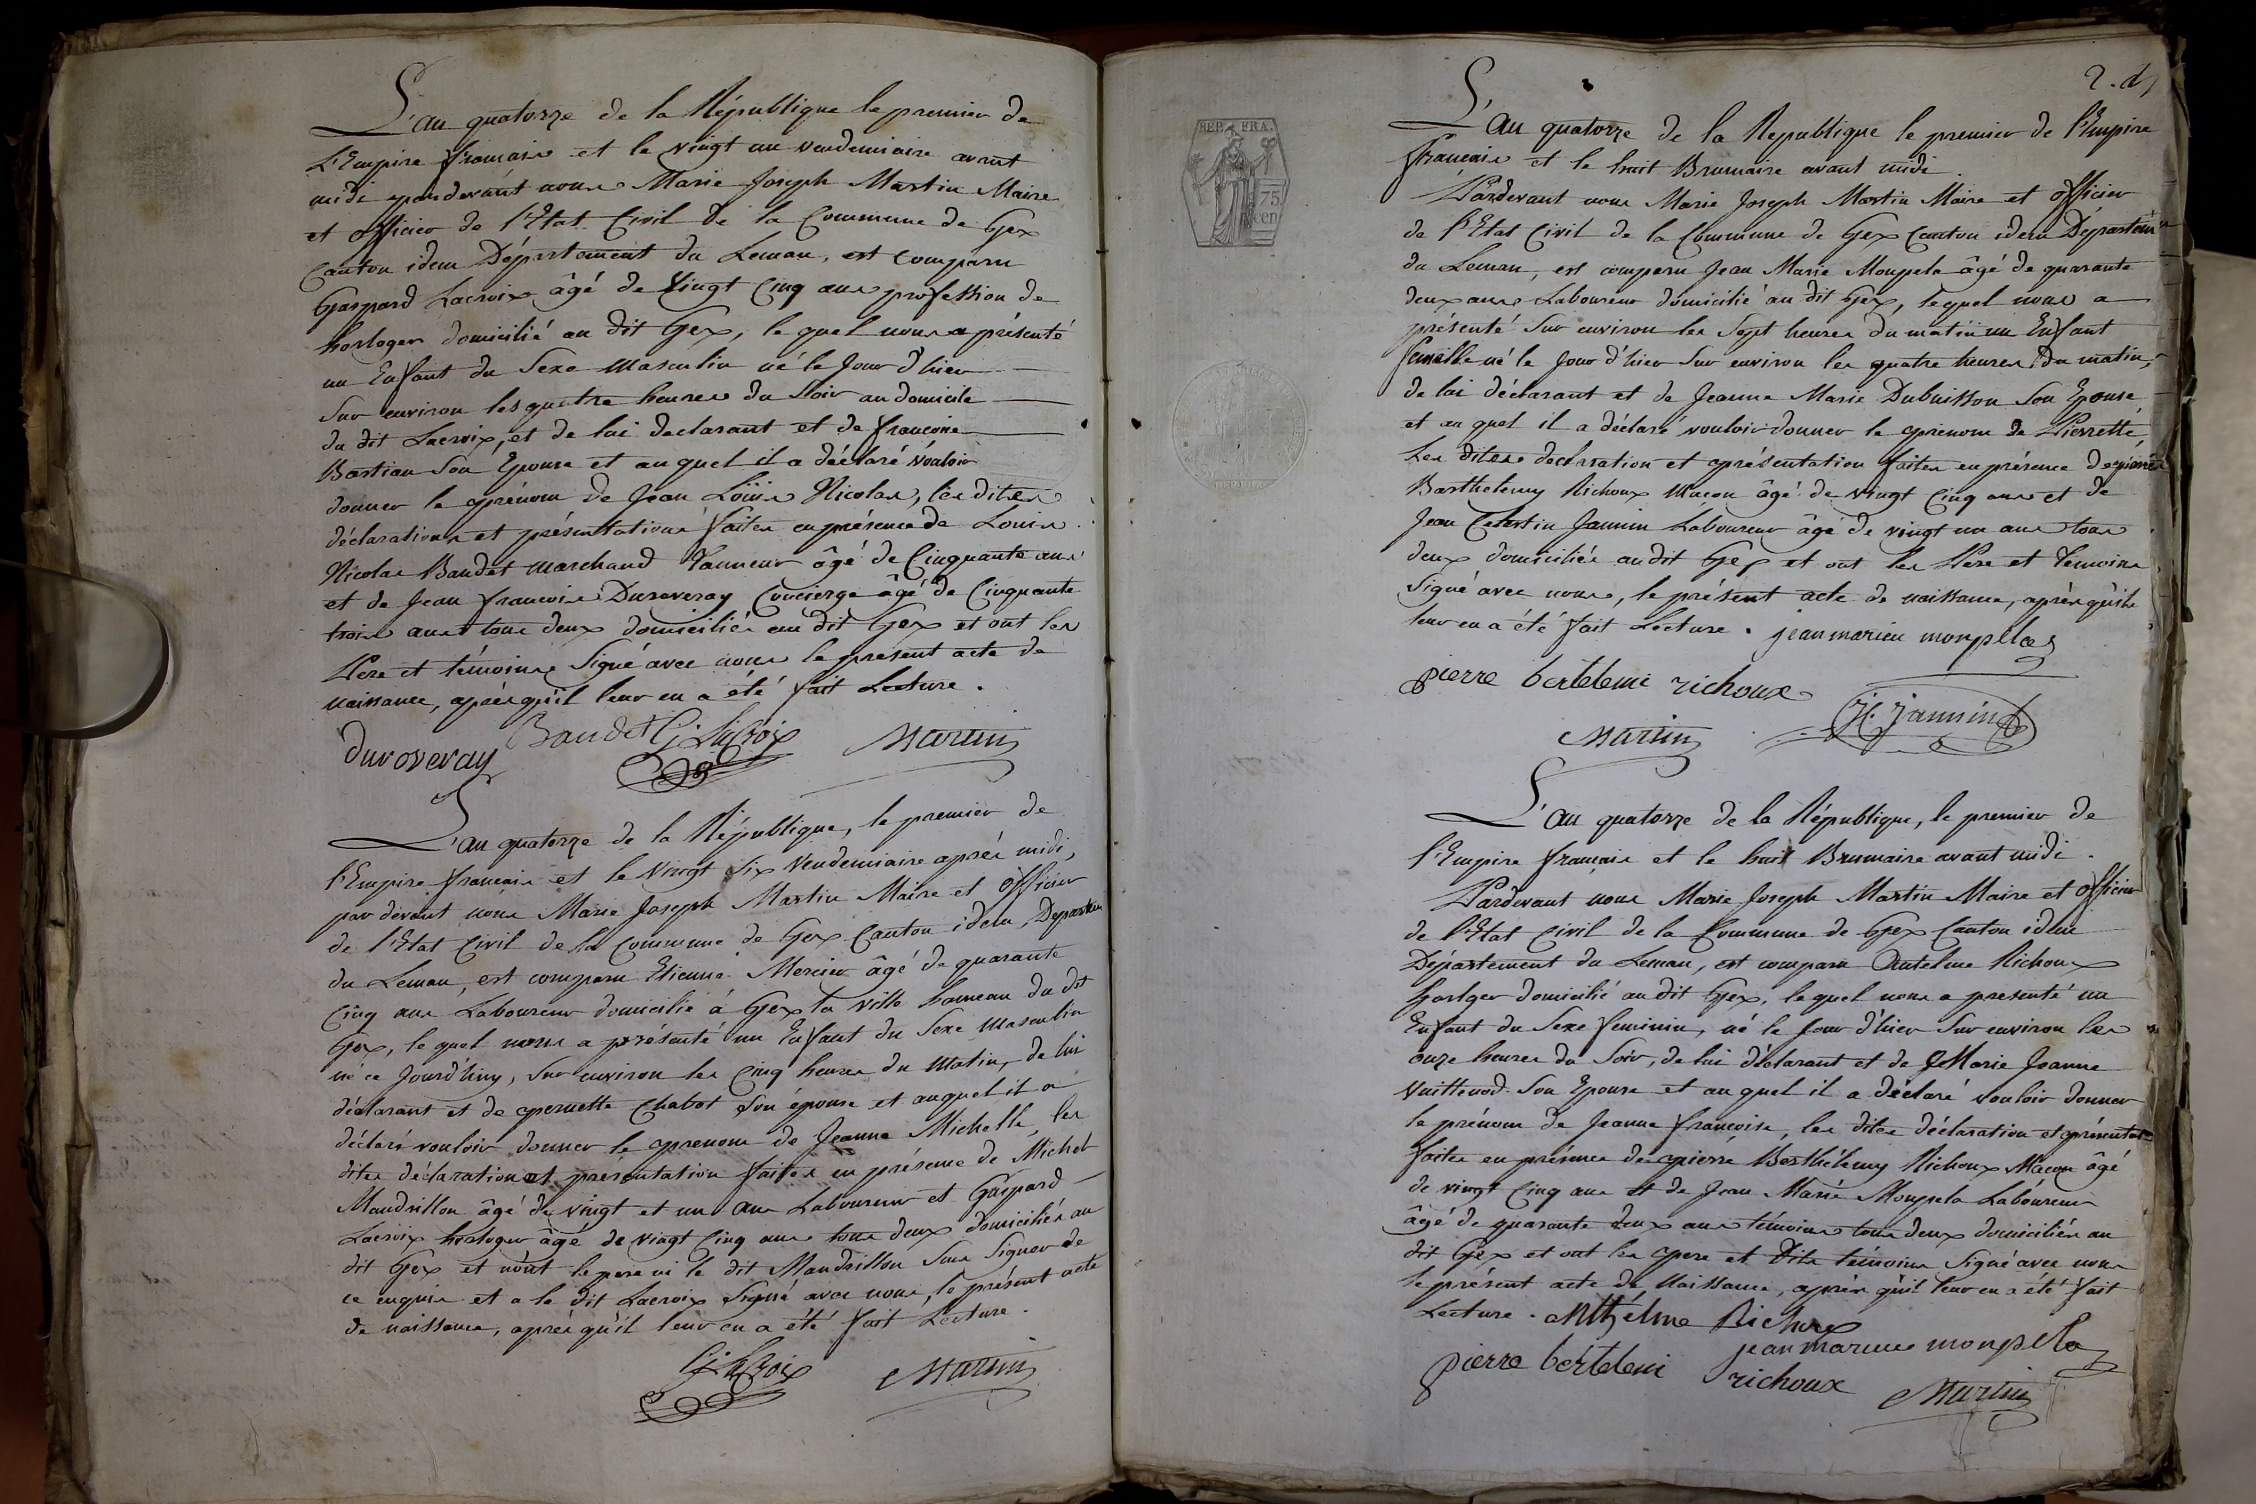 L'an quatorze de la République le premier de
L'Empire francais et le vingt un vendemiaire avant
midi pardevant nous Marie Joseph Martin Maire
et officier de l'Etat Civil de la Commune de Gex
Canton idem Département du Leman, est comparu
Gaspard Lacroix âgé de Vingt Cinq ans profession de
horloger domicilié au dit Gex, le quel nous a présenté
un Enfant du Sexe Masculin né le Jour d'hier
Sur environ les quatre heures du Soir au domicile
du dit Lacroix, et de lui declarant et de francoise
Bastian Son Epouse et au quel il a déclaré vouloir
donner le prénom de Jean Loüis Nicolas, les dites
déclarations et présentations faites en présence de Louis
Nicolas Baudet marchand Tanneur âgé de Cinquante ans
et de Jean francois Duroveray Concierge âgé de Cinquante
trois ans tous deux domiciliés au dit Gex et ont les
Pere et témoins Signé avec nous le present acte de
naissance, après qu'il leur en a été fait Lecture.
duroveray Baudet G. LaCroix Martin
L'an quatorze de la République, le premier de
l'Empire francais et le Vingt Six Vendemiaire après midi,
par devant nous Marie Joseph Martin Maire et officier
de l'Etat Civil de la Commune de Gex Canton idem, Departem
du Leman, est comparu Etienne Mercier âgé de quarante
Cinq ans Laboureur domicilié à Gex la ville hameau du dit
Gex, le quel nous a présenté un Enfant du Sexe Masculin
né ce Jourd'huy, Sur environ les Cinq heures du Matin, de lui
déclarant et de pernette Chabot Son épouse et auquel il a
déclaré vouloir donner le prenom de Jeanne Michelle, les
dites déclaration et présentation faites en présence de Michel
Maudrillon âgé de vingt et un ans Laboureur et Gaspard
Lacroix horloger âgé de vingt Cinq ans tous deux domiciliés au
dit Gex et n'ont le pere ni le dit Maudrillon Sçus Signer de
ce enquis et a le dit Lacroix Signé avec nous, le présent acte
de naissance, après qu'il leur en a été fait Lecture.
G. LaCroix Martin
REP. FRA.
75
cen
L'an quatorze de la Republique le premier de l'Empire
francais et le huit Brumaire avant midi.
Pardevant nous Marie Joseph Martin Maire et officier
de l'Etat Civil de la Commune de Gex Canton idem Départem
du Leman, est comparu Jean Marie Monpela âgé de quarante
deux ans Laboureur domicilié au dit Gex, lequel nous a
présenté Sur environ les Sept heures du matin un Enfant
femelle né le Jour d'hier Sur environ les quatre heures du matin,
de lui déclarant et de Jeanne Marie Dubuisson Son Epouse
et au quel il a déclaré vouloir donner le prenom de Pierrette,
Les dites declaration et présentation faites en présence de pierre
Barthelemy Richoux Macon âgé de vingt Cinq ans et de
Jean Celestin Jannin Laboureur âgé de vingt un ans tous
deux domiciliés au dit Gex et ont les Pere et Temoins
Signé avec nous, le présent acte de naissance, après qu'il
leur en a été fait Lecture. jean marieu monpella
pierre bertelemi richoux
Martin J. C. Jannin
L'an quatorze de la République, le premier de
l'Empire français et le huit Brumaire avant midi.
Pardevant nous Marie Joseph Martin Maire et officier
de l'Etat Civil de la Commune de Gex Canton idem
Département du Leman, est comparu Antelme Richoux
horlger domicilié au dit Gex, lequel nous a présenté un
Enfant du Sexe feminin, né le Jour d'hier Sur environ les
onze heures du Soir, de lui déclarant et de Marie Jeanne
Vuillerod Son Epouse et au quel il a déclaré vouloir donner
le prénom de Jeanne francoise, les dites déclaration et présentat
faites en présence de pierre Barthélemy Richoux Macon âgé
de vingt Cinq ans et de Jean Marie Monpela Laboureur
âgé de quarante deux ans témoins tous deux domiciliés au
dit Gex et ont les pere et Dits témoins Signé avec nous
le présent acte de Naissance, après qu'il leur en a été fait
Lecture. Anthelme Richoux
jean marieu monpela
pierre bertelemi richoux Martin